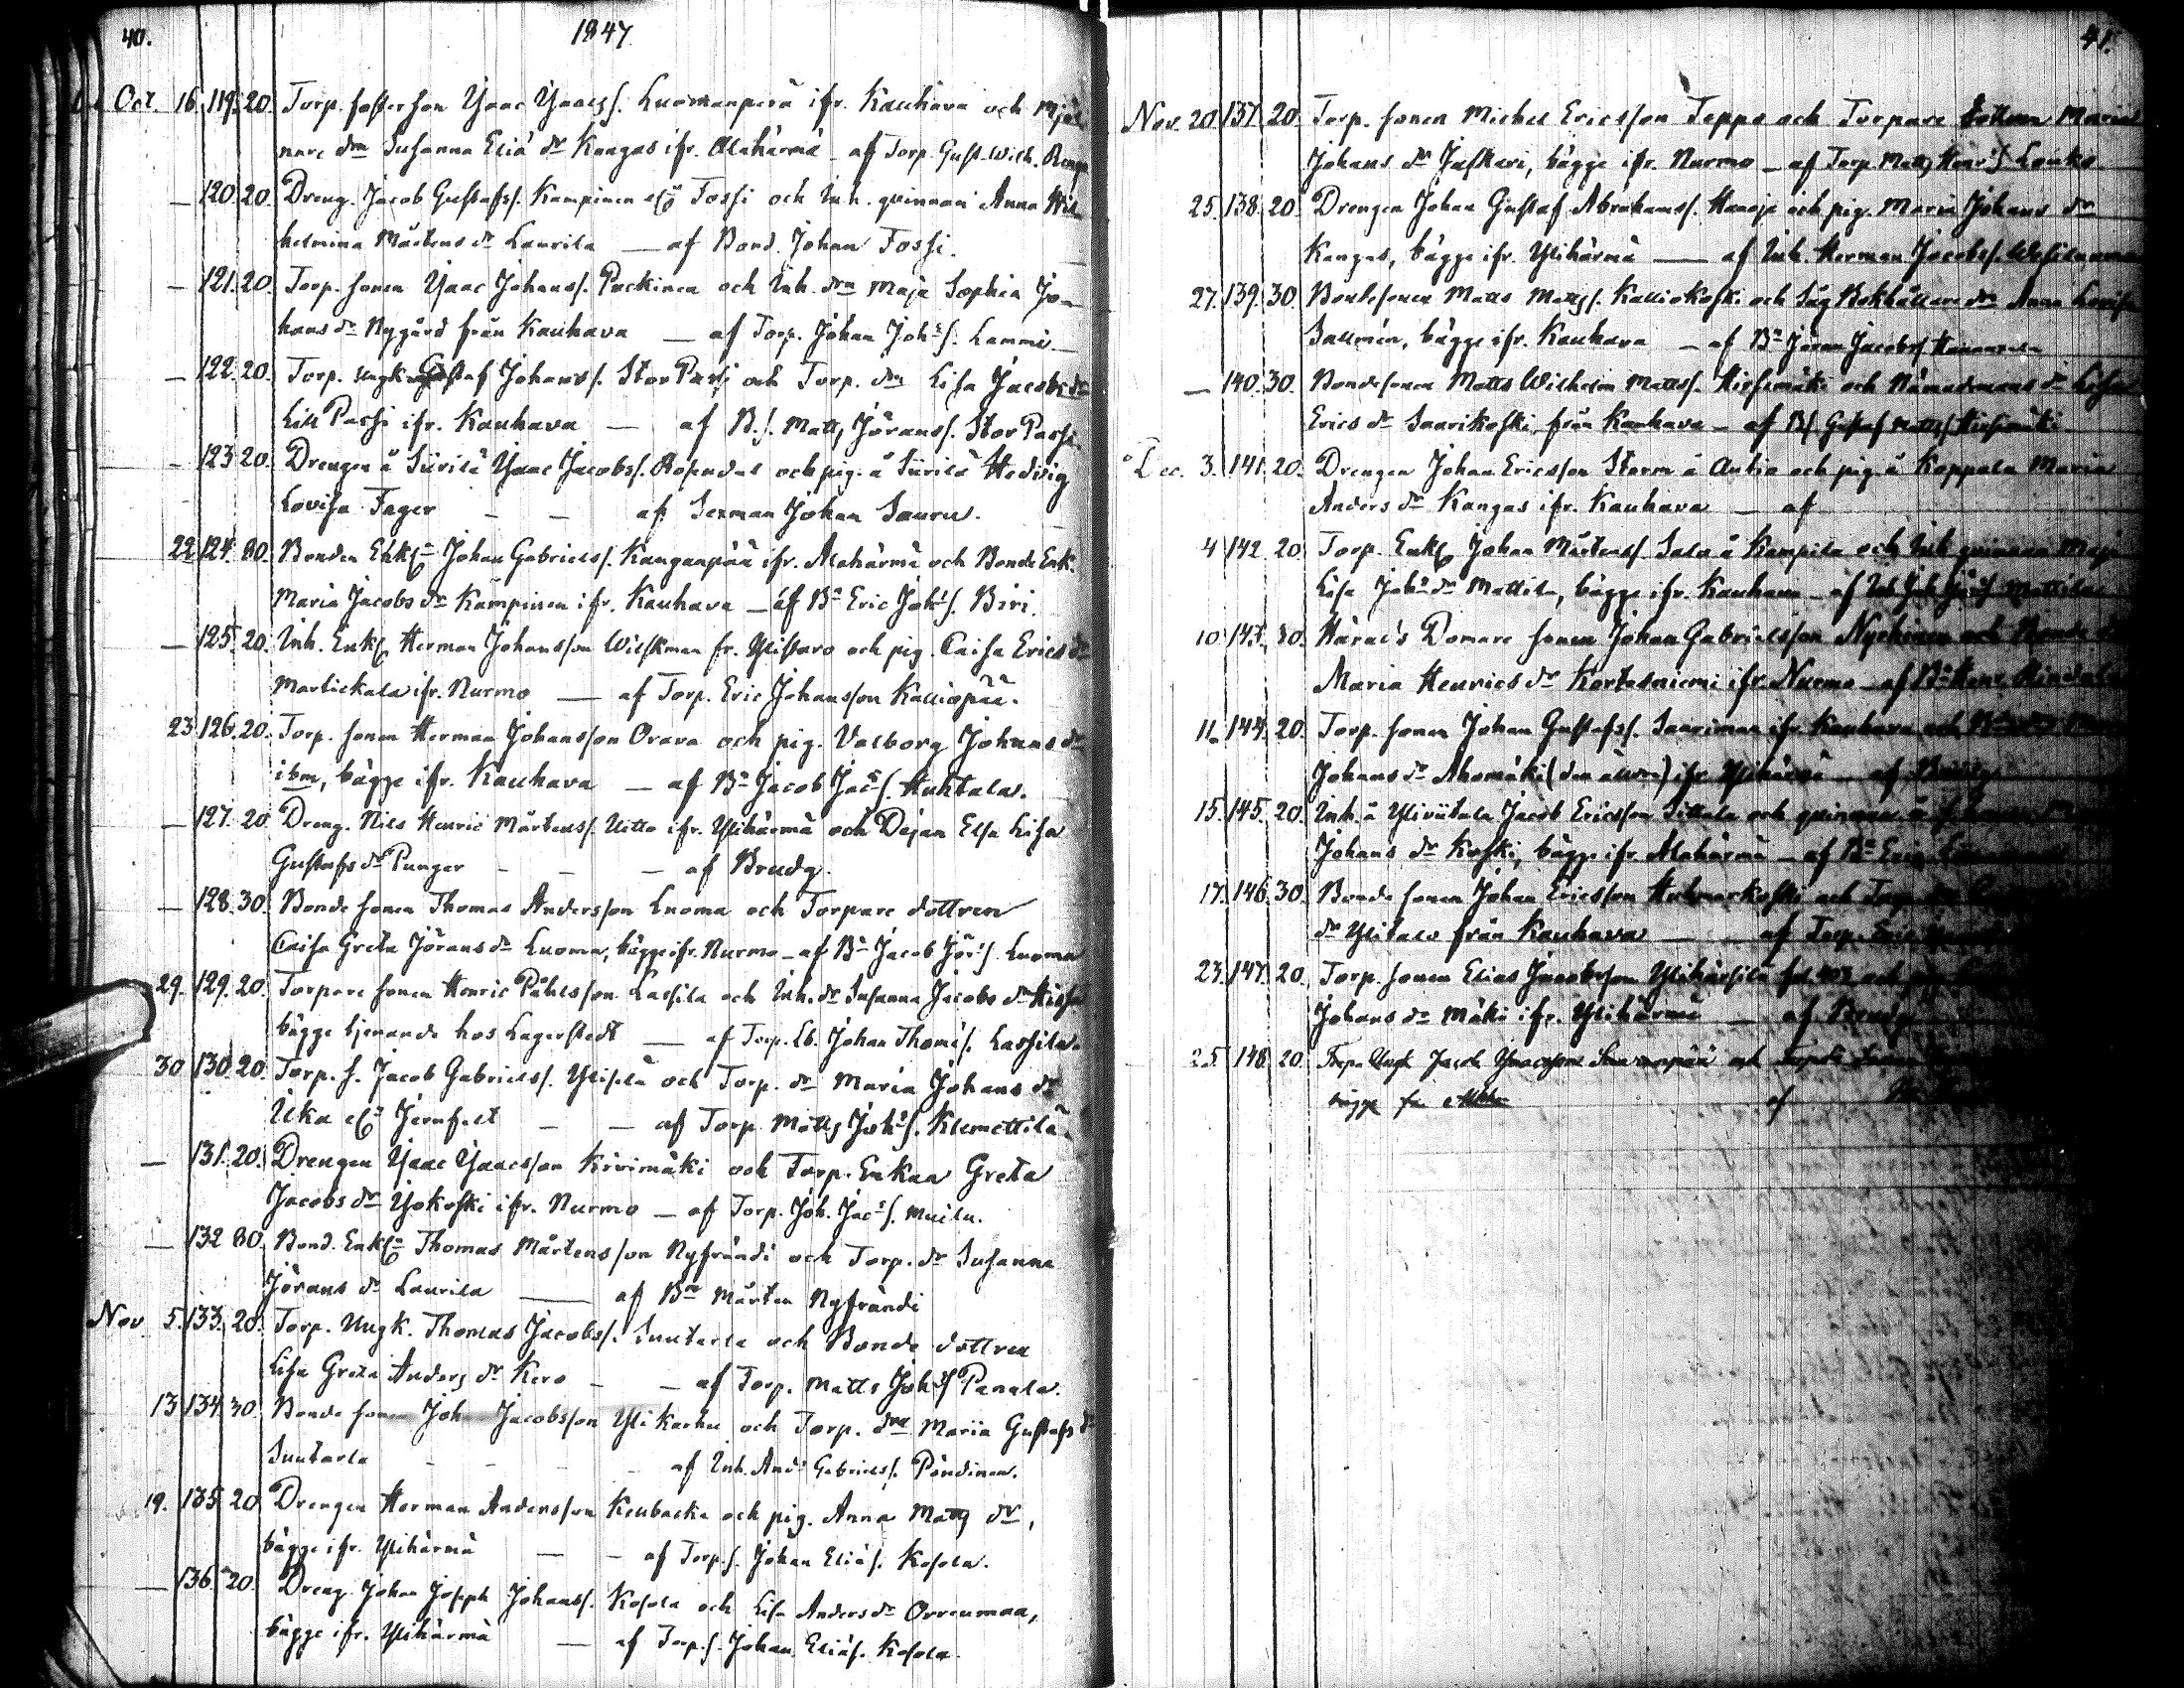 40.
1847
Oct. 16. 119. 20. Torp. fosterson Isaac Isacss. Luomanperä ifr. Kauhava och Mjöl
nare drn Susanna Eliä dr Kangas ifr. Alahärmä _ af Torp. Gust. Wilh.
— 120. 20. Dreng. Jacob Gustafss. Kampinen eller Fossi och Inh. qvinnan Anna Wil
helmina Mårtens dr Laurila — af Bond. Johan Fossi.
— 121. 20. Torp. sonen Isaac Johanss. Packinen och Inh. drn Maja Sophia Jo-
hans dr Nygård från Kauhava — af Torp. Johan Johs S. Lammi
— 122. 20. Torp. ungk. Gustaf Johanss. Stor Passi och Torp. drn Lisa Jacobs dr
Lill Passi ifr. Kauhava — af B.s. Matts Jöranss. Stor Passi
— 123. 20. Drengen å Siirilä Isaac Jacobss. Rosendal och pig. å Siirilä Hedvig
Lovisa Fager — — af Sexman Johan Sauru.
22. 124. 80. Bonden Enkl. Johan Gabrielss. Kanganpää ifr. Alahärmä och Bonde Enk.
Maria Jacobs dr Kampinen ifr. Kauhava — af Bn Eric Johs S. Biri.
— 125. 20. Inh. Enkl. Herman Johansson Wilskman fr. Ylistaro och pig. Caisa Erics dr
Martickala ifr. Nurmo — af Torp. Eric Johansson Kalliopää.
23. 126. 20. Torp. sonen Herman Johansson Orava och pig. Valborg Johans dr
ibm, bägge ifr. Kauhava — af Bn Jacob Jacs S. Huhtala.
— 127. 20. Dreng. Nils Henric Mårtenss. Uitto ifr. Ylihärmä och Dejan Elsa Lisa
Gustafs dr Punger — — — af Brudg.
— 128. 30. Bonde sonen Thomas Andersson Luoma och Torpare dottren
Caisa Greta Jörans dr Luoma, bägge ifr. Nurmo _ af Bn Jacob Jörs S. Luoma
29. 129. 20. Torpare sonen Henric Påhlsson Lassila och Inh. dr Susanna Jacobs dr
bägge tjenande hos Lagerstedt — af Torp. Johan Thoms S. Lassila.
30. 130. 20. Torp. s. Jacob Gabrielss. Ylisilä och Torp. dr Maria Johans dr
Uka eller Jernfelt — — af Torp. Matts Johs S. Klemettilä.
— 131. 20. Drengen Isaac Isaacsson Kivimäki och Torp. Enkan Greta
Jacobs dr Ijokoski ifr. Nurmo — af Torp. Joh. Jacs S. Muilu.
— 132 80. Bond. Enkl. Thomas Mårtensson Nyfrändi och Torp. dr Susanna
Jörans dr Laurila — af Bn Mårten Nyfrändi
Nov. 5. 133. 20. Torp. Ungk. Thomas Jacobss. Suutarla och Bonde dottren
Lisa Greta Anders dr Kero — — af Torp. Matts Johs S Panula.
13. 134. 30. Bonde sonen Joh Jacobsson Yli Karhu och Torp. drn Maria Gustafs dr
Suutarla — — — — af Inh. And: Gabrielss. Pöndinen.
19. 135. 20. Drengen Herman Andersson Kenbacka och pig. Anna Matts dr,
bägge ifr. Ylihärmä — — af Torp. s. Johan Elias. Kosola.
— 136. 20. Dreng. Johan Joseph Johanss. Kosola och Lisa Anders dr Orrenmaa,
bägge ifr. Ylihärmä — af Torp. s. Johan Elias. Kosola.
41.
Nov. 20. 137. 20. Torp. sonen Michel Ericsson Teppo och Torpare dottren Maria
Johans dr Jaskari, bägge ifr. Nurmo — af Torp. Matts Henrs S. Louko
25. 138. 20. Drengen Johan Gustaf Abrahamss. Haarja och pig. Maria Johans dr
Kangas, bägge ifr. Ylihärmä — af Inh. Herman Jacobss.
27. 139. 30. Bondesonen Matts Mattss. Kalliokoski och Såg Bokhållare drn Anna Lovisa
Sallmén, bägge ifr. Kauhava — af Bn Jöran Jacobss
— 140. 30. Bondesonen Matts Wilhelm Mattss. Hirsimäki och Nämndemans dr Lisa
Erics dr Saarikoski från Kauhava — af Bs Gustaf Mattss. Hirsimäki
Dec. 3. 141. 20. Drengen Johan Ericsson Storm å Antia och pig. å Koppala Maria
Anders dr Kangas ifr. Kauhava — af
4. 142. 20. Torp. Enkl. Johan Mårtenss. Salo å Kampila och Inh. qvinnan Maja
Lisa Johs dr Mattila, bägge ifr. Kauhava — af Inh. Joh Mattila
10. 143. 30. Härads Domare sonen Johan Gabrielsson Nyckinen och Bonde
Maria Henrics dr Kortesniemi ifr. Nurmo — af Bn Henr.
11. 144. 20. Torp. sonen Johan Gustafss. Saarimaa ifr. Kauhava och
Johans dr Ahomäki (den äldre) ifr. Ylihärmä — af Brudg.
15. 145. 20. Inh. å Yliviitala Jacob Ericsson Sillala och qvinnan å
Johans dr Koski, bägge ifr. Alahärmä — af Bn Eric
17. 146. 30. Bonde sonen Johan Ericsson Huhmarkoski och Torp.
dr Ylitalo från Kauhava — af Torp. Eric
23. 147. 20. Torp. sonen Elias Jacobsson Ylihärsilä och
Johans dr Mäki ifr. Ylihärmä — af Brudg.
25. 148. 20. Torp. Ungk. Jacob Isaacsson och
bägge fr. af